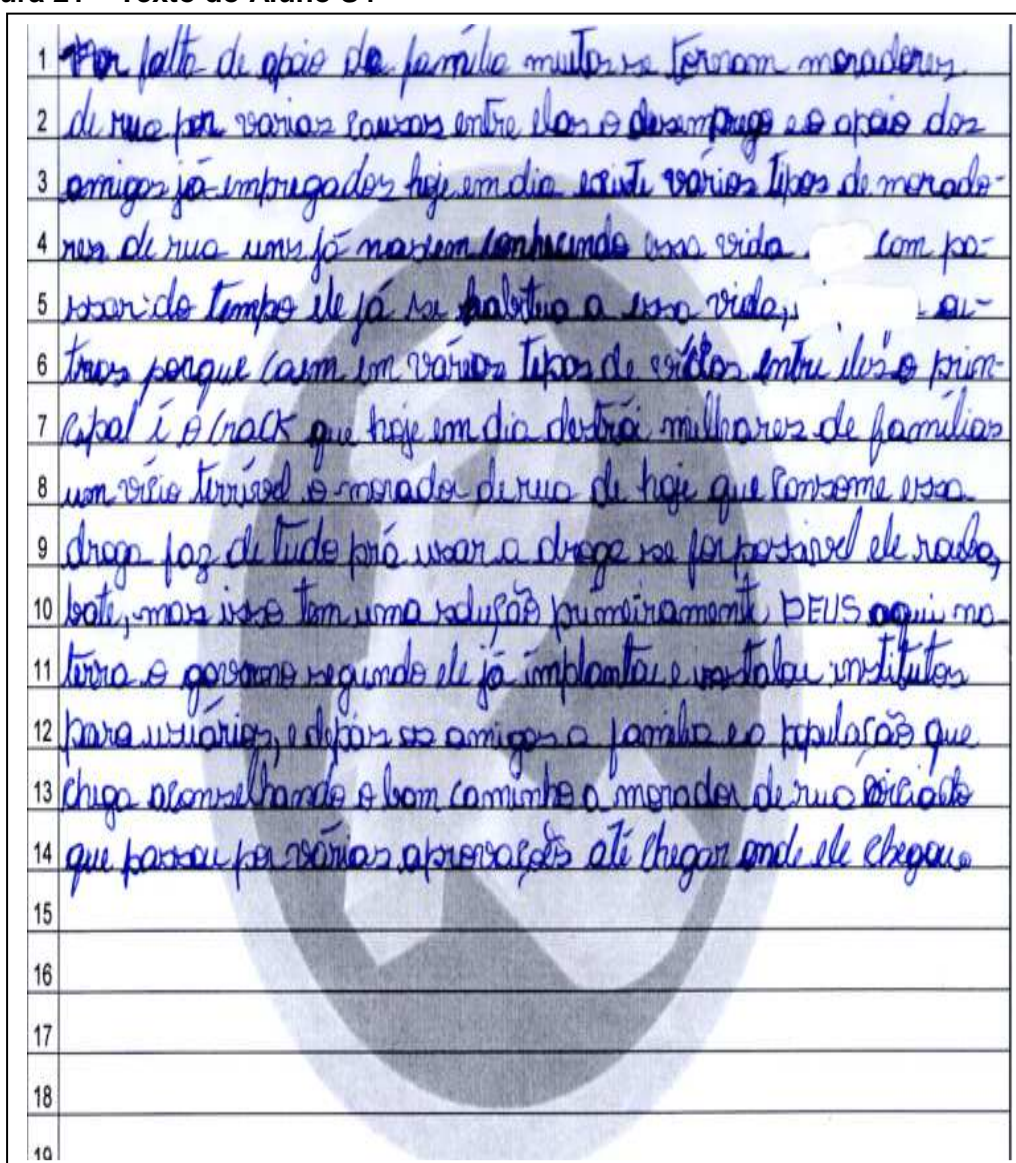 1 Por falta de apoio da família muitos se tornam moradores
2 de rua por varias causas entre elas o desemprego e o apoio dos
3 amigos já empregados hoje em dia existe vários tipos de morado-
4 res de rua uns já nascem conhecendo essa vida com pa-
5 ssar do tempo ele já se habitua a essa vida, ou-
6 tros porque caem em vários tipos de vícios entre eles o prin-
7 cipal é o crack que hoje em dia destrói milhares de famílias
8 um vício terrível o morador de rua de hoje que consome essa
9 droga faz de tudo prá usar a droga se for possivel ele rouba,
10 bate, mas isso tem uma solução primeiramente DEUS aqui na
11 terra o governo segundo ele já implantou e instalou institutos
12 para usuários, e depois os amigos a família e a população que
13 chega aconselhando o bom caminho o morador de rua viciado
14 que passou por várias aprovações até chegar onde ele chegou.
15
16
17
18
19